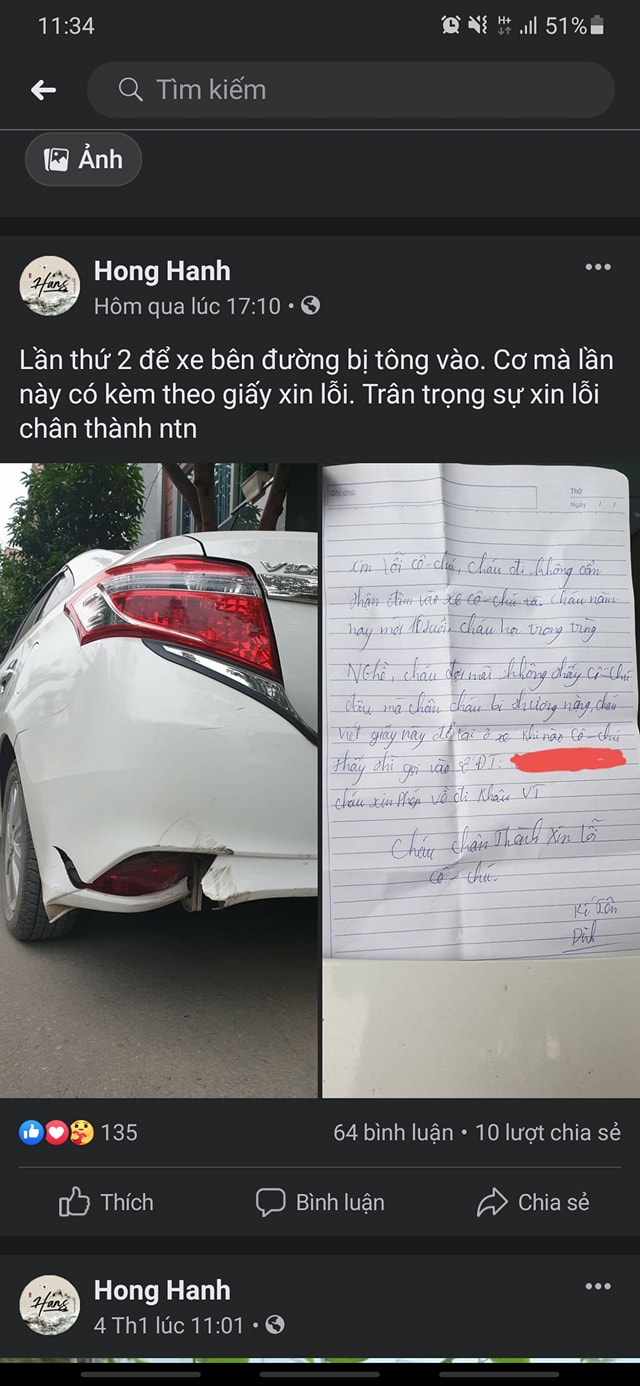 11:34
H+
51%
Tìm kiếm
Ảnh
Hans
Hong Hanh
Hôm qua lúc 17:10
Lần thứ 2 để xe bên đường bị tông vào. Cơ mà lần
này có kèm theo giấy xin lỗi. Trân trọng sự xin lỗi
chân thành ntn
VIOS
Ghi chú:
Thứ
Ngày / /
xin lỗi cô chú, cháu đi không cẩn
thận đâm vào xe cô chú ạ. cháu năm
nay mới tuổi, cháu học trong trường
Nghề, cháu đợi mãi không thấy cô chú
đâu mà chân cháu bị thương nặng, cháu
viết giấy này để lại ở xe khi nào cô chú
thấy thì gọi vào số ĐT:
cháu xin Phép về đi khâu VT
Cháu Chân Thành Xin Lỗi
Cô - chú.
Kí tên
135
64 bình luận • 10 lượt chia sẻ
Thích
Bình luận
Chia sẻ
Hans
Hong Hanh
4 Th1 lúc 11:01